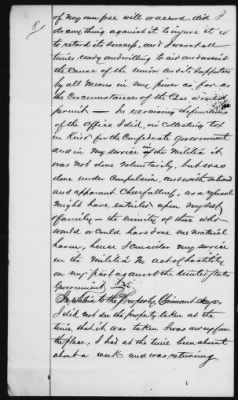 of my own free will or accord did I
do any thing against it to injure it or
to retard its success, and I was at all
times ready and willing to aid and assist
the Cause of the Union and its Supporters
by all means in my power as far as
the Circumstances of the Case would
permit — In exercising the functions
of the Office I did, in collecting that
in Kind for the Confederate Government
and in my service in the Militia it
was not done voluntarily, but was
done under Compulsion, and with
and apparent Cheerfulness, as a refusal
might have entailed upon my self &
family — the enmity of those who
would or Could have done me material
harm, hence I consider my service
in the Militia no act of hostility
on my part against the United States
Government
In relation to the Property, Claimant Says.
I did not see the property taken at the
time, that it was taken I was away from
the place, I had at the time been absent
about a week and was returning